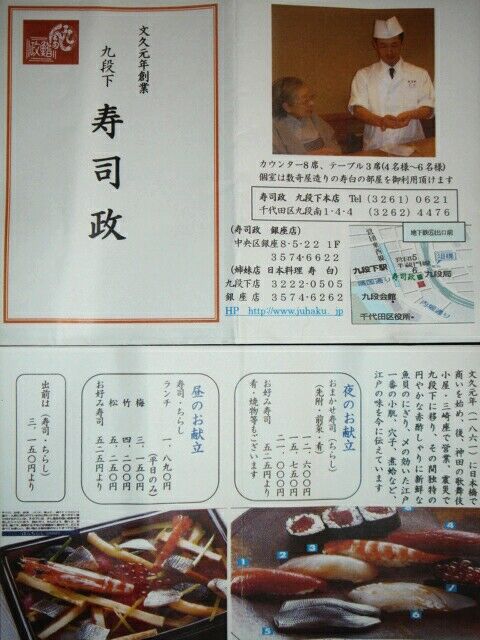 文久元年創業
九段下 寿司政
カウンター8席、テーブル3席(4名様〜6名様)
個室は数寄屋造りの寿白の部屋を御利用頂けます
寿司政 九段下本店 Tel (3261) 0621
千代田区九段南1-4-4 (3262) 4476
(寿司政 銀座店)
中央区銀座8-5-22 1F
3574-6622
(姉妹店 日本料理 寿 白)
九段下店 3222-0505
銀座店 3574-6262
HP http://www.juhaku.jp
地下鉄⑥出口前
九段下駅
寿司政
九段局
九段会館
千代田区役所
文久元年(一八六一)に日本橋で
商いを始め、後、神田の歌舞伎
小屋・三崎座で営業、震災で
九段下に移り、その間独特の
円やかな赤酢しゃりに新鮮な
魚貝のにぎり、〆の効いた江戸
一番の小肌・穴子・煮蛤など、
江戸の味を今に伝えています
夜のお献立
おまかせ寿司(ちらし)
(先附・前菜・肴)
一二、六〇〇円
一五、七五〇円
二一、〇〇〇円
お好み寿司 五二五円より
肴・焼物等もございます
昼のお献立
寿司・ちらし
ランチ 一、八九〇円
(平日のみ)
梅 三、一五〇円
竹 四、二〇〇円
松 五、二五〇円
お好み寿司 五二五円より
出前は(寿司・ちらし)
三、一五〇円より
1
2
3
4
5
6